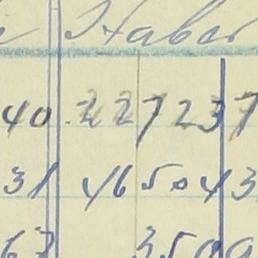 Haben
40 227237
31 465043
63 3509